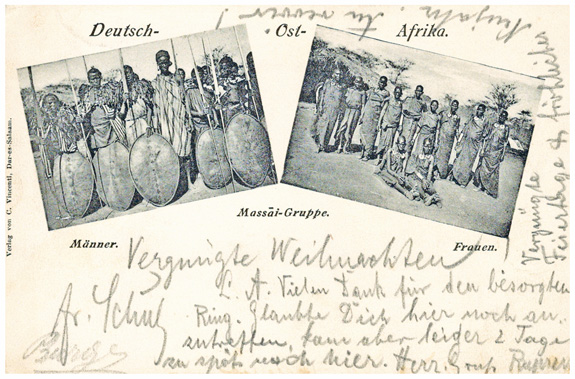 Deutsch- Ost- Afrika.
Verlag von C. Vincenti, Dar-es-Salaam.
Massai-Gruppe.
Männer.
Frauen.
Vergnügte Weihnachten
L. A. Vielen Dank für den besorgten
Ring. Glaubte Dich hier noch an-
zutreffen, kam aber leider 2 Tage
zu spät nach hier. Herz. Gruß
Fr. Schulz
Vergnügte
Feiertage & fröhliches
Neujahr